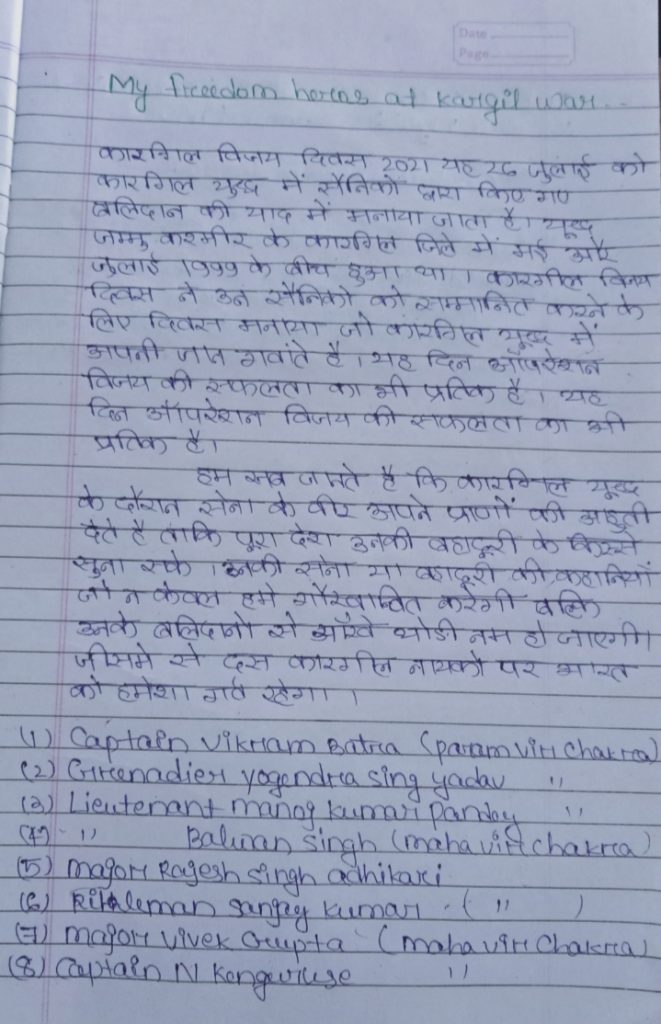 Date
Page
My freedom heros at kargil war..
कारगिल विजय दिवस 2021 यह 26 जुलाई को
कारगिल युद्ध में सैनिको द्वारा किए गए
बलिदान की याद में मनाया जाता है। युद्ध
जम्मु कश्मीर के कारगिल जिले में मई और
जुलाई 1999 के बीच हुआ था। कारगील विजय
दिवस ने उन सैनिको को सम्मानित करने के
लिए दिवस मनाया जो कारगिल युद्ध में
अपनी जान गवांते है। यह दिन ऑपरेशन
विजय की सफलता का भी प्रतिक है। यह
दिन ऑपरेशन विजय की सफलता का भी
प्रतिक है।
हम सब जानते है कि कारगिल युद्ध
के दौरान सेना के वीर अपने प्राणों की आहुती
देते है ताकि पूरा देश उनकी बहादूरी के किस्से
सुना सके। उनकी सेना या बहादूरी की कहानियाँ
जो न केवल हमे गौरवान्वित करेगी बल्कि
उनके बलिदानो से आँखे थोडी नम हो जाएगी।
जीसमे से दस कारगील नायको पर भारत
को हमेशा गर्व रहेगा।
(1) Captain Vikram Batra (param vir chakra)
(2) Grenadier yogendra sing yadav "
(3) Lieutenant manoj kumar pandey "
(4) - " Balwan singh (maha vir chakra)
(5) major Rajesh singh adhikari
(6) Rifleman sanjay kumar - ( " )
(7) major vivek Gupta (maha vir Chakra)
(8) Captain N Kenguruse "